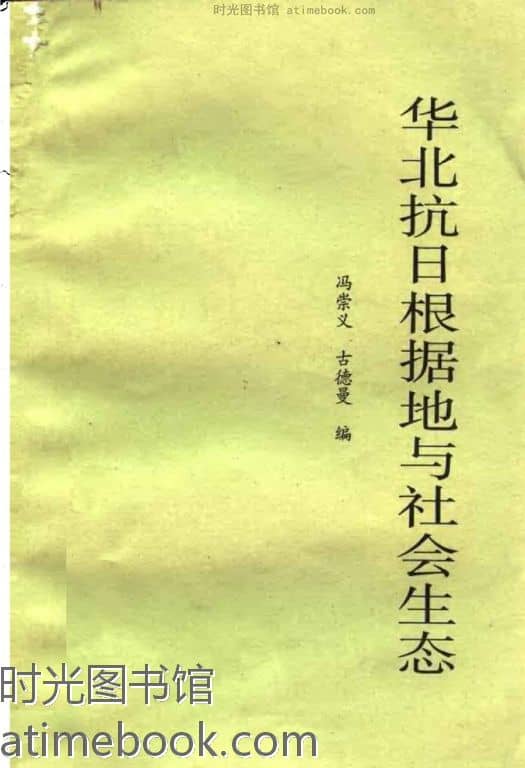 时光图书馆 atimebook.com
华北抗日根据地与社会生态
冯崇义 古德曼 编
时光图书馆
atimebook.com